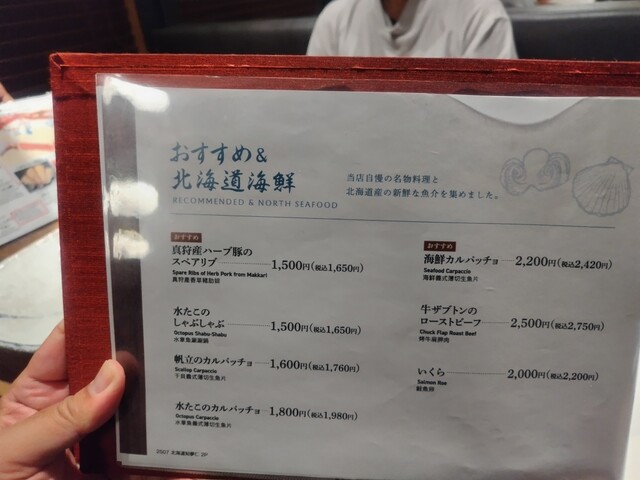 おすすめ&
北海道海鮮
RECOMMENDED & NORTH SEAFOOD
当店自慢の名物料理と
北海道産の新鮮な魚介を集めました。
おすすめ
真狩産ハーブ豚の
スペアリブ 1,500円(税込1,650円)
Spare Ribs of Herb Pork from Makkari
真狩產香草豬肋排
水たこの
しゃぶしゃぶ 1,500円(税込1,650円)
Octopus Shabu-Shabu
水章魚涮涮鍋
帆立のカルパッチョ 1,600円(税込1,760円)
Scallop Carpaccio
干貝義式薄切生魚片
水たこのカルパッチョ 1,800円(税込1,980円)
Octopus Carpaccio
水章魚義式薄切生魚片
おすすめ
海鮮カルパッチョ 2,200円(税込2,420円)
Seafood Carpaccio
海鮮義式薄切生魚片
牛ザブトンの
ローストビーフ 2,500円(税込2,750円)
Chuck Flap Roast Beef
烤牛肩胛肉
いくら 2,000円(税込2,200円)
Salmon Roe
鮭魚卵
2507 北海道知夢仁 2P